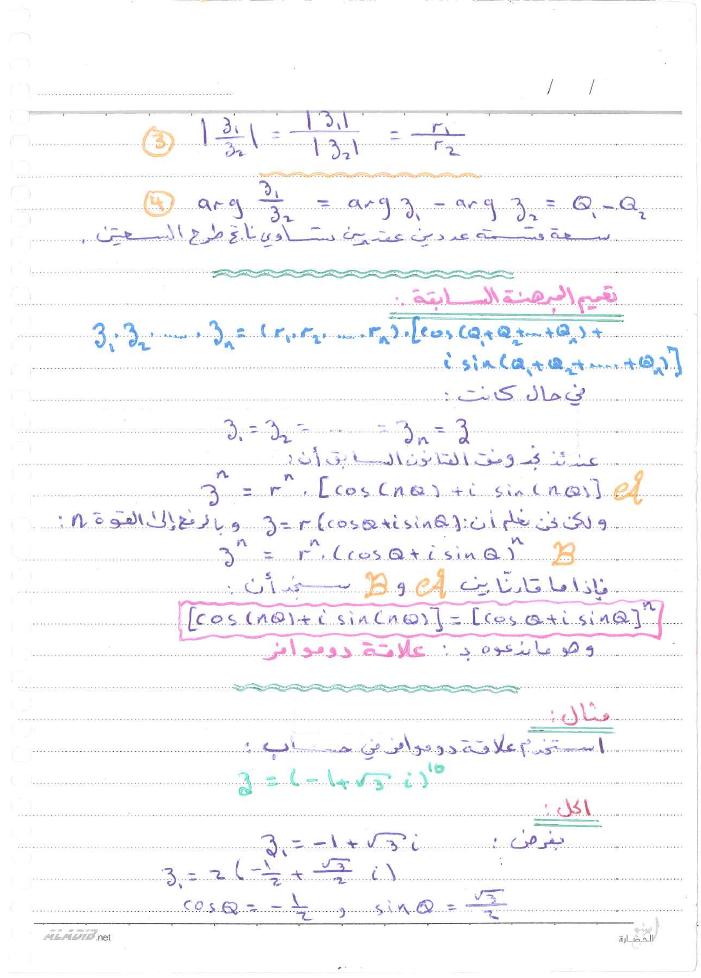 / /
③ |z₁/z₂| = |z₁|/|z₂| = r₁/r₂
④ arg z₁/z₂ = arg z₁ - arg z₂ = θ₁ - θ₂
سعة قسمة عددين عقديين تساوي ناتج طرح السعتين.
تعميم المبرهنة السابقة:
z₁. z₂. ..... . zₙ = (r₁. r₂. .... rₙ). [cos(θ₁+θ₂+...+θₙ)+
i sin(θ₁+θ₂+.....+θₙ)]
في حال كانت:
z₁ = z₂ = ..... = zₙ = z
عندئذ نجد وفق القانون السابق أن:
zⁿ = rⁿ. [cos(nθ) + i sin(nθ)] A
ولكن نحن نعلم أن: z = r(cosθ+i sinθ) وبالرفع إلى القوة n:
zⁿ = rⁿ. (cosθ + i sinθ)ⁿ B
فإذا ما قارنّا بين A و B سنجد أن:
[cos(nθ)+i sin(nθ)] = [cosθ+i sinθ]ⁿ
وهو ما ندعوه بـ: علاقة دوموافر
مثال:
استخدم علاقة دوموافر في حساب:
z = (-1+√3 i)¹⁰
الحل:
بفرض: z₁ = -1 + √3 i
z₁ = 2(-1/2 + √3/2 i)
cosθ = -1/2 , sinθ = √3/2
ALADIB.net
الحضارة